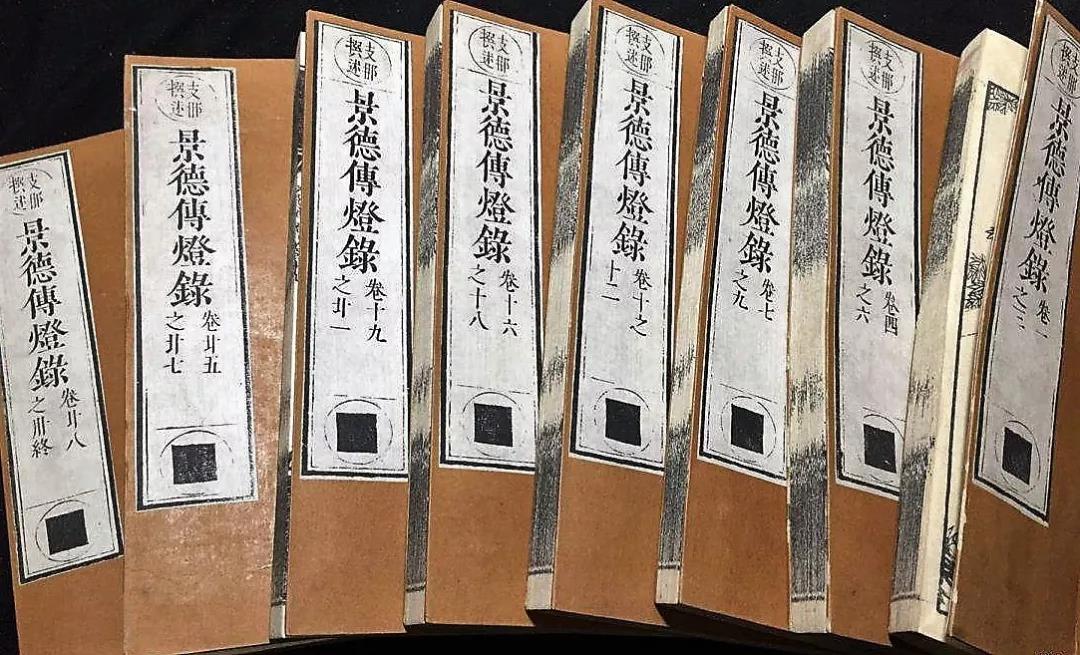 支那
撰述
景德傳燈錄
卷一
之三
支那
撰述
景德傳燈錄
卷四
之六
支那
撰述
景德傳燈錄
卷七
之九
支那
撰述
景德傳燈錄
卷十之
十二
支那
撰述
景德傳燈錄
卷十六
之十八
支那
撰述
景德傳燈錄
卷十九
之廿一
支那
撰述
景德傳燈錄
卷廿五
之廿七
支那
撰述
景德傳燈錄
卷廿八
之卅終